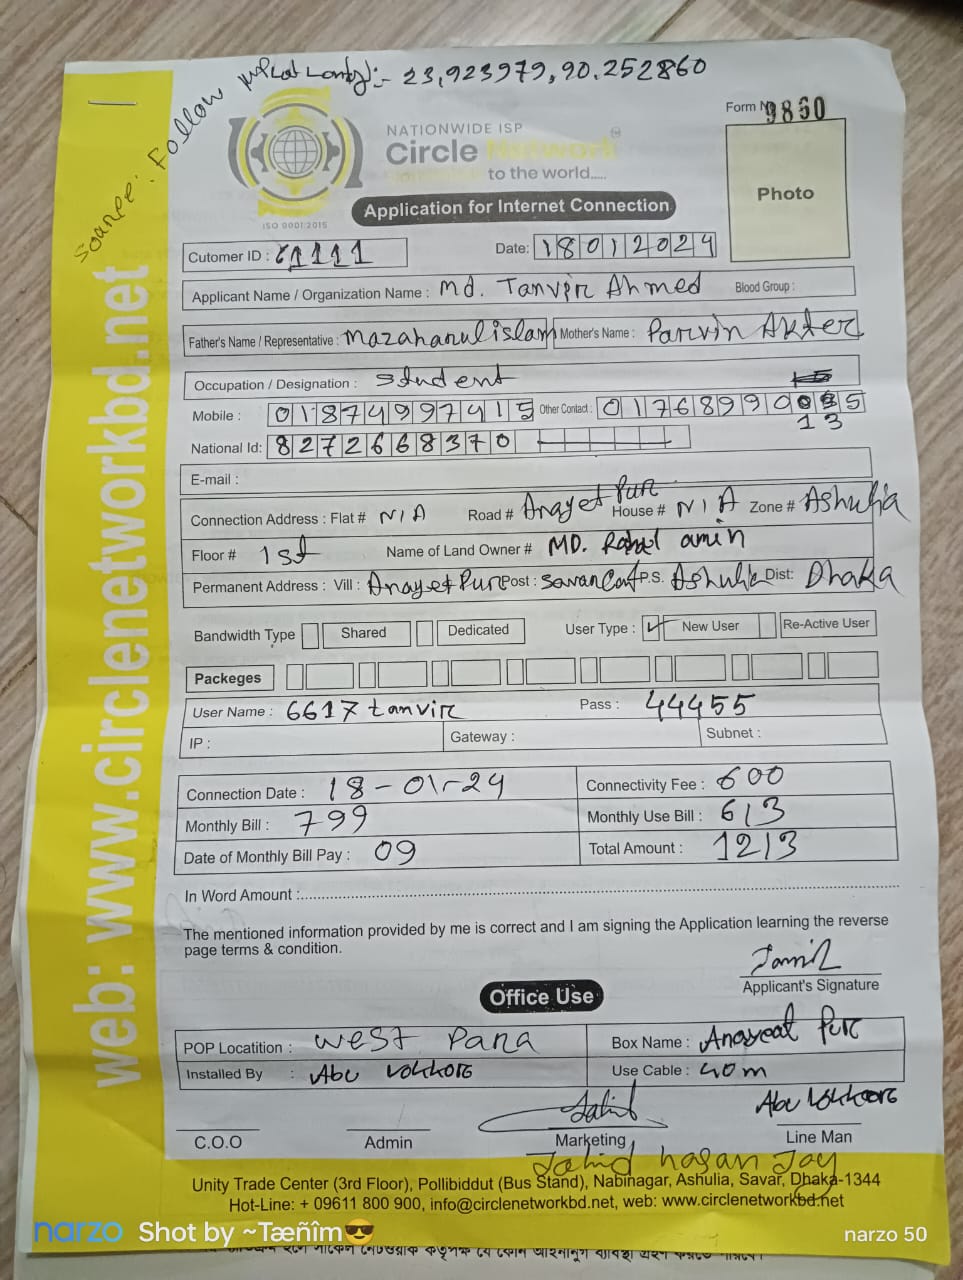 Lat Long:- 23,923979,90.252860
Soaree: Follow
Form No 9860
NATIONWIDE ISP
Circle Network
to the world.....
ISO 9001:2015
Photo
Application for Internet Connection
Cutomer ID : 61111 Date: 18012024
Applicant Name / Organization Name : Md. Tanvir Ahmed Blood Group :
Father's Name / Representative : Mazaharul islam Mother's Name : Parvin Akter
Occupation / Designation : Student
Mobile : 01874997415 Other Contact : 01768990 5
13
National Id: 8272668370
E-mail :
Connection Address : Flat # N/A Road # Anayet Pur House # N/A Zone # Ashulia
Floor # 1st Name of Land Owner # MD. Rahul amin
Permanent Address : Vill : Anayet Pur Post : Savar Cant P.S. Ashulia Dist: Dhaka
Bandwidth Type Shared Dedicated User Type : New User Re-Active User
Packeges
User Name : 6617tanvir Pass : 44455
IP : Gateway : Subnet :
Connection Date : 18-01-24 Connectivity Fee : 600
Monthly Bill : 799 Monthly Use Bill : 613
Date of Monthly Bill Pay : 09 Total Amount : 1213
In Word Amount :
The mentioned information provided by me is correct and I am signing the Application learning the reverse
page terms & condition.
Applicant's Signature
Office Use
POP Locatition : West Para Box Name : Anayeat Pur
Installed By : Abu Vokkors Use Cable : 40m
Jahid Abu Vokkors
C.O.O Admin Marketing Line Man
Jahid hasan Joy
Unity Trade Center (3rd Floor), Pollibiddut (Bus Stand), Nabinagar, Ashulia, Savar, Dhaka-1344
Hot-Line: + 09611 800 900, info@circlenetworkbd.net, web: www.circlenetworkbd.net
web: www.circlenetworkbd.net
narzo Shot by ~Tæñîm😎 narzo 50